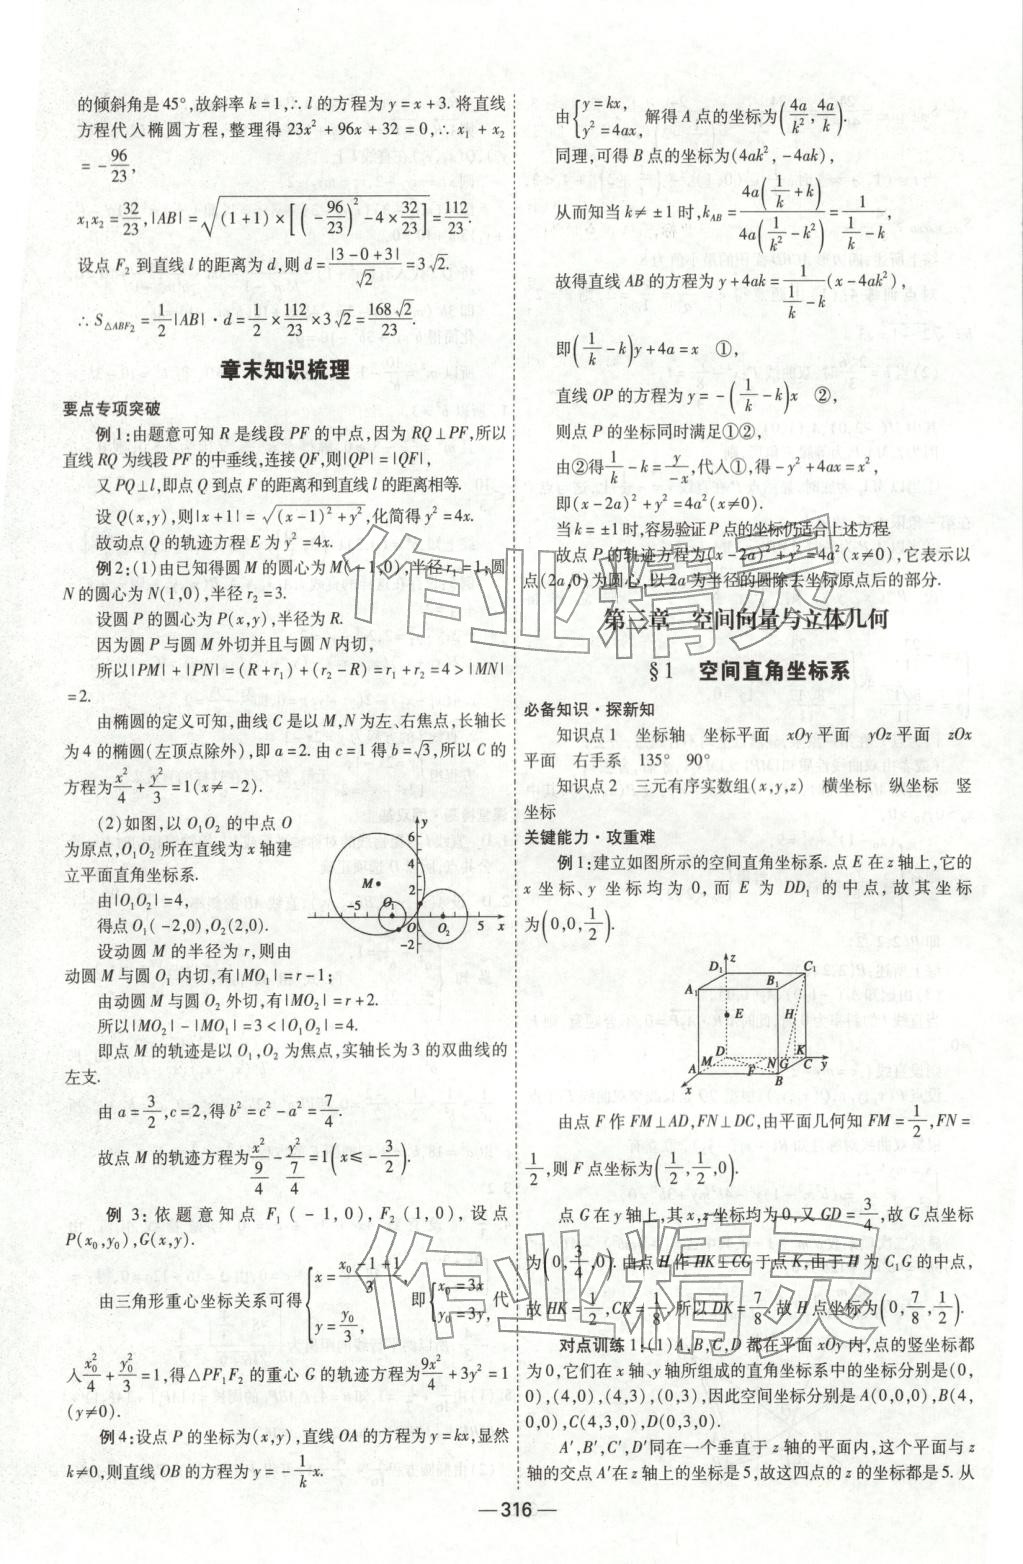 的倾斜角是45°,故斜率k=1,∴l的方程为y=x+3.将直线
方程代入椭圆方程,整理得23x²+96x+32=0,∴x₁+x₂
=-96/23,
x₁x₂=32/23,|AB|=√((1+1)×[(-96/23)²-4×32/23])=112/23.
设点F₂到直线l的距离为d,则d=|3-0+3|/√2=3√2.
∴S△ABF₂=1/2|AB|·d=1/2×112/23×3√2=168√2/23.
章末知识梳理
要点专项突破
例1:由题意可知R是线段PF的中点,因为RQ⊥PF,所以
直线RQ为线段PF的中垂线,连接QF,则|QP|=|QF|,
又PQ⊥l,即点Q到点F的距离和到直线l的距离相等.
设Q(x,y),则|x+1|=√((x-1)²+y²),化简得y²=4x.
故动点Q的轨迹方程E为y²=4x.
例2:(1)由已知得圆M的圆心为M(-1,0),半径r₁=1;圆
N的圆心为N(1,0),半径r₂=3.
设圆P的圆心为P(x,y),半径为R.
因为圆P与圆M外切并且与圆N内切,
所以|PM|+|PN|=(R+r₁)+(r₂-R)=r₁+r₂=4>|MN|
=2.
由椭圆的定义可知,曲线C是以M,N为左、右焦点,长轴长
为4的椭圆(左顶点除外),即a=2.由c=1得b=√3,所以C的
方程为x²/4+y²/3=1(x≠-2).
(2)如图,以O₁O₂的中点O
为原点,O₁O₂所在直线为x轴建
立平面直角坐标系.
由|O₁O₂|=4,
得点O₁(-2,0),O₂(2,0).
设动圆M的半径为r,则由
y
6
4
2
M
-5
O₁
O
O₂
5
x
-2
动圆M与圆O₁内切,有|MO₁|=r-1;
由动圆M与圆O₂外切,有|MO₂|=r+2.
所以|MO₂|-|MO₁|=3<|O₁O₂|=4.
即点M的轨迹是以O₁,O₂为焦点,实轴长为3的双曲线的
左支.
由a=3/2,c=2,得b²=c²-a²=7/4.
故点M的轨迹方程为x²/(9/4)-y²/(7/4)=1(x≤-3/2).
例3:依题意知点F₁(-1,0),F₂(1,0),设点
P(x₀,y₀),G(x,y).
由三角形重心坐标关系可得{x=(x₀-1+1)/3, y=y₀/3, 即{x₀=3x, y₀=3y, 代
入x₀²/4+y₀²/3=1,得△PF₁F₂的重心G的轨迹方程为9x²/4+3y²=1
(y≠0).
例4:设点P的坐标为(x,y),直线OA的方程为y=kx,显然
k≠0,则直线OB的方程为y=-1/k x.
由{y=kx, y²=4ax, 解得A点的坐标为(4a/k²,4a/k).
同理,可得B点的坐标为(4ak²,-4ak),
从而知当k≠±1时,k_AB=4a(1/k+k)/4a(1/k²-k²)=1/(1/k-k),
故得直线AB的方程为y+4ak=1/(1/k-k)(x-4ak²),
即(1/k-k)y+4a=x ①,
直线OP的方程为y=-(1/k-k)x ②,
则点P的坐标同时满足①②,
由②得1/k-k=-y/x,代入①,得-y²+4ax=x²,
即(x-2a)²+y²=4a²(x≠0).
当k=±1时,容易验证P点的坐标仍适合上述方程.
故点P的轨迹方程为(x-2a)²+y²=4a²(x≠0),它表示以
点(2a,0)为圆心,以2a为半径的圆除去坐标原点后的部分.
第三章 空间向量与立体几何
§1 空间直角坐标系
必备知识·探新知
知识点1 坐标轴 坐标平面 xOy平面 yOz平面 zOx
平面 右手系 135° 90°
知识点2 三元有序实数组(x,y,z) 横坐标 纵坐标 竖
坐标
关键能力·攻重难
例1:建立如图所示的空间直角坐标系.点E在z轴上,它的
x坐标、y坐标均为0,而E为DD₁的中点,故其坐标
为(0,0,1/2).
z
D₁
C₁
A₁
B₁
E
H
D
K
M
N
G
C
y
A
F
B
x
由点F作FM⊥AD,FN⊥DC,由平面几何知FM=1/2,FN=
1/2,则F点坐标为(1/2,1/2,0).
点G在y轴上,其x,z坐标均为0,又GD=3/4,故G点坐标
为(0,3/4,0).由点H作HK⊥CG于点K,由于H为C₁G的中点,
故HK=1/2,CK=1/8,所以DK=7/8,故H点坐标为(0,7/8,1/2).
对点训练1:(1)A,B,C,D都在平面xOy内,点的竖坐标都
为0,它们在x轴、y轴所组成的直角坐标系中的坐标分别是(0,
0),(4,0),(4,3),(0,3),因此空间坐标分别是A(0,0,0),B(4,
0,0),C(4,3,0),D(0,3,0).
A′,B′,C′,D′同在一个垂直于z轴的平面内,这个平面与z
轴的交点A′在z轴上的坐标是5,故这四点的z的坐标都是5.从
—316—
作业精灵
作业精灵